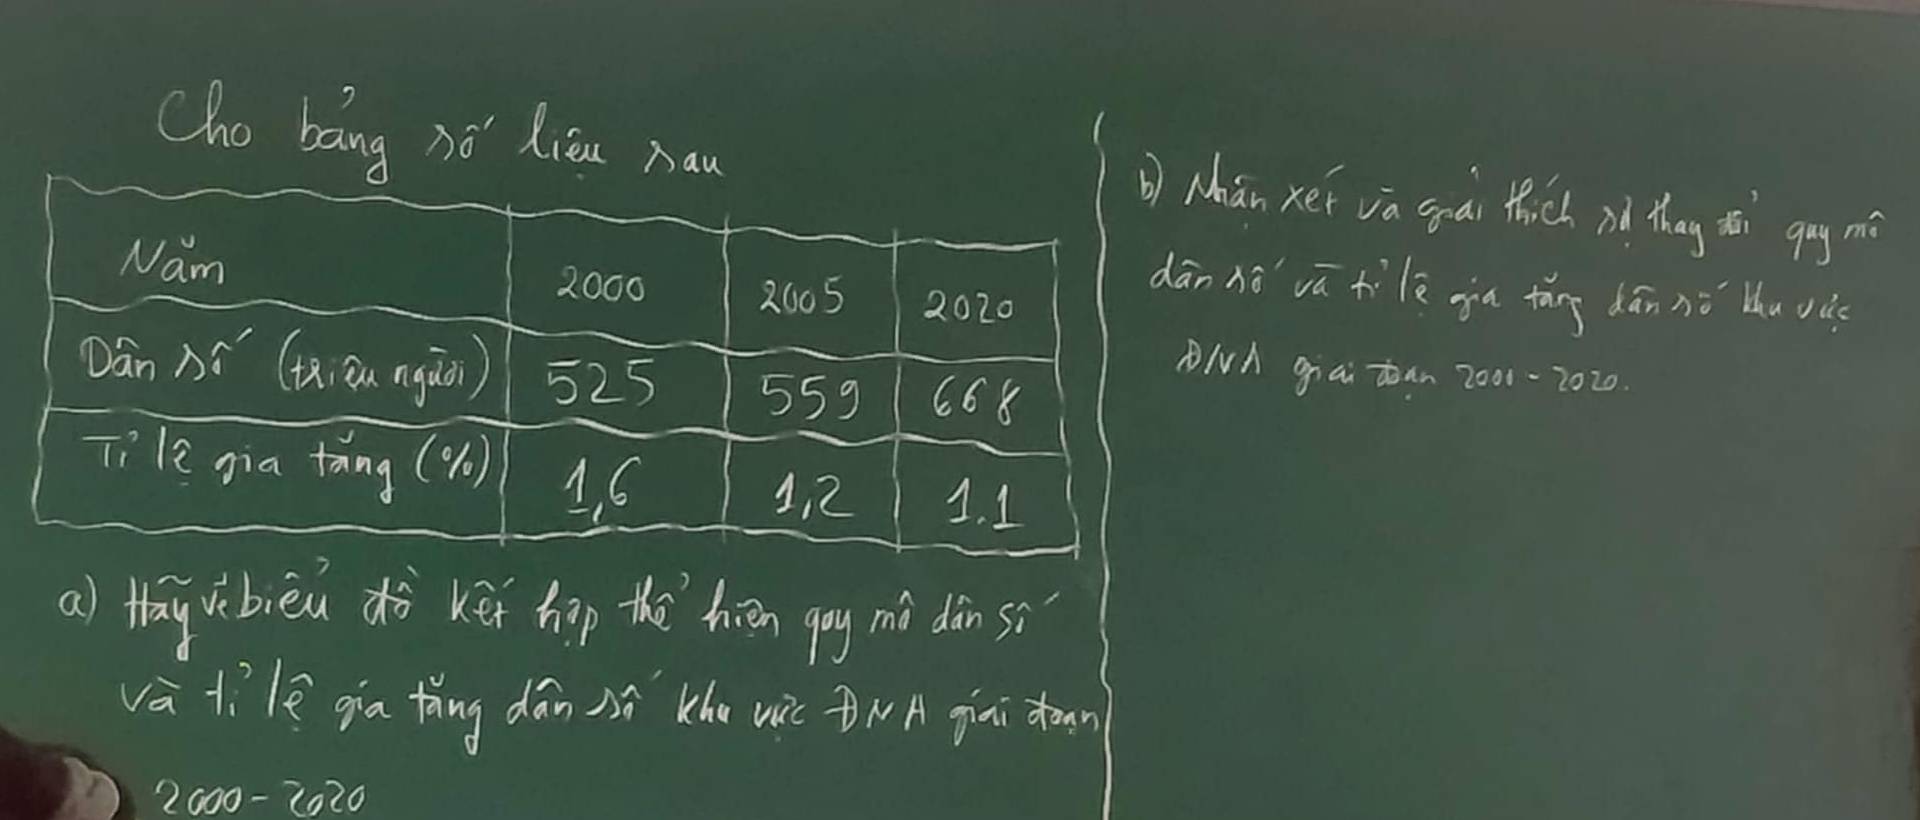 Cho bảng số liệu sau
Năm 2000 2005 2020
Dân số (triệu người) 525 559 668
Tỉ lệ gia tăng (%) 1,6 1,2 1.1
a) Hãy vẽ biểu đồ kết hợp thể hiện quy mô dân số
và tỉ lệ gia tăng dân số khu vực ĐNA giai đoạn
2000-2020
b) Nhận xét và giải thích sự thay đổi quy mô
dân số và tỉ lệ gia tăng dân số khu vực
ĐNA giai đoạn 2000-2020.